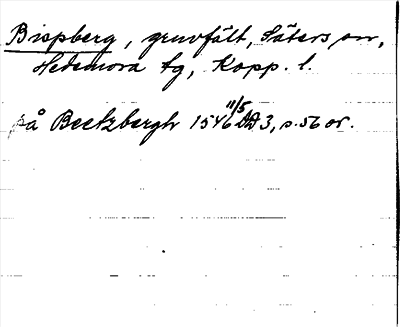 Bispberg, gruvfält, Säters sn,
Hedemora tg, Kopp. l.
på Beetzbergh 1546 11/5 DA 3, s. 56 or.